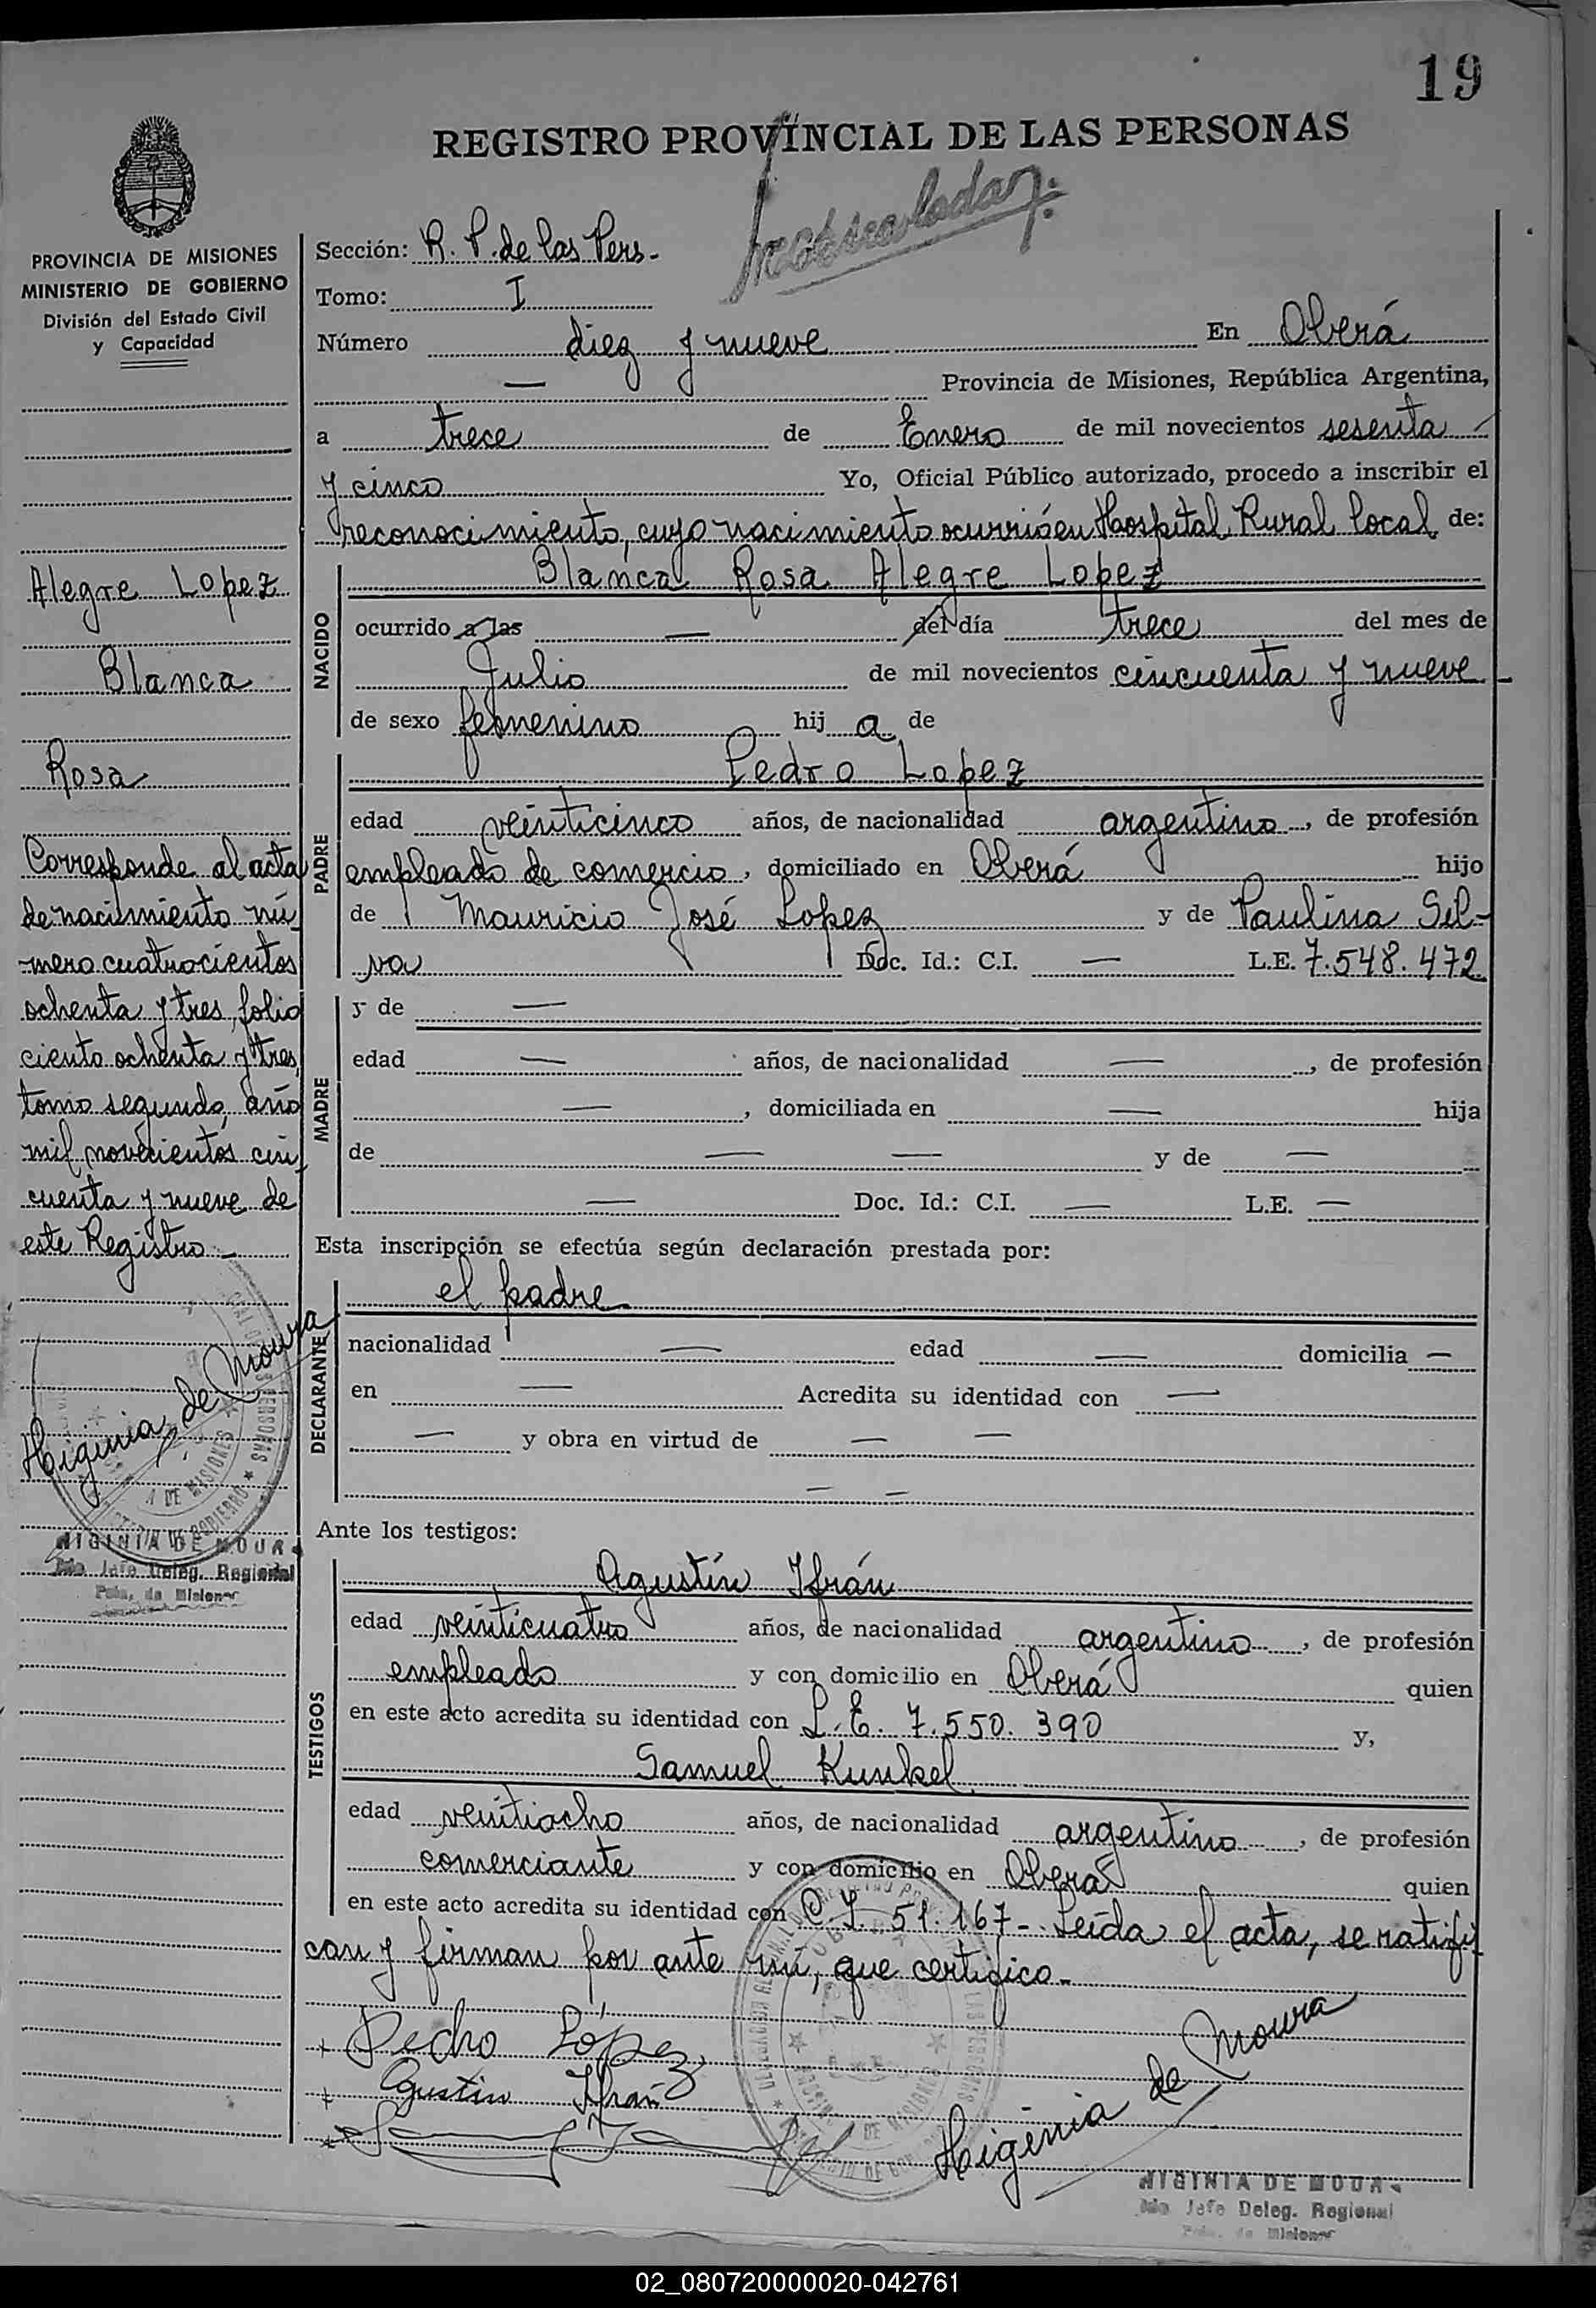 19
REGISTRO PROVINCIAL DE LAS PERSONAS
PROVINCIA DE MISIONES
MINISTERIO DE GOBIERNO
División del Estado Civil
y Capacidad
Alegre Lopez
Blanca
Rosa
Corresponde al acta
de nacimiento nú-
mero cuatrocientos
ochenta y tres, folio
ciento ochenta y tres,
tomo segundo, año
mil novecientos cin-
cuenta y nueve de
este Registro.-
Higinia de Moura
HIGINIA DE MOURA
Jefe Deleg. Regional
Pcia. de Misiones
Matriculada
Sección: R. P. de las Pers.
Tomo: I
Número diez y nueve En Oberá
— Provincia de Misiones, República Argentina,
a trece de Enero de mil novecientos sesenta
y cinco Yo, Oficial Público autorizado, procedo a inscribir el
reconocimiento, cuyo nacimiento ocurrió en Hospital Rural local de:
NACIDO
Blanca Rosa Alegre Lopez
ocurrido a las — del día trece del mes de
Julio de mil novecientos cincuenta y nueve
de sexo femenino hij a de
PADRE
Pedro Lopez
edad veinticinco años, de nacionalidad argentino, de profesión
empleado de comercio, domiciliado en Oberá hijo
de Mauricio José Lopez y de Paulina Sil-
va Doc. Id.: C.I. — L.E. 7.548.472
MADRE
y de —
edad — años, de nacionalidad —, de profesión
—, domiciliada en — hija
de — — y de —
— Doc. Id.: C.I. — L.E. —
Esta inscripción se efectúa según declaración prestada por:
DECLARANTE
el padre
nacionalidad — edad — domicilia —
en — Acredita su identidad con —
— y obra en virtud de — —
— —
Ante los testigos:
TESTIGOS
Agustín Ifrán
edad veinticuatro años, de nacionalidad argentino, de profesión
empleado y con domicilio en Oberá quien
en este acto acredita su identidad con L.E. 7.550.390 y,
Samuel Kunkel
edad veintiocho años, de nacionalidad argentino, de profesión
comerciante y con domicilio en Oberá quien
en este acto acredita su identidad con C.I. 51.167- Leída el acta, se ratifi
can y firman por ante mí, que certifico.-
Pedro López
Agustin Ifrán
Higinia de Moura
HIGINIA DE MOURA
Jefe Deleg. Regional
Pcia. de Misiones
02_080720000020-042761